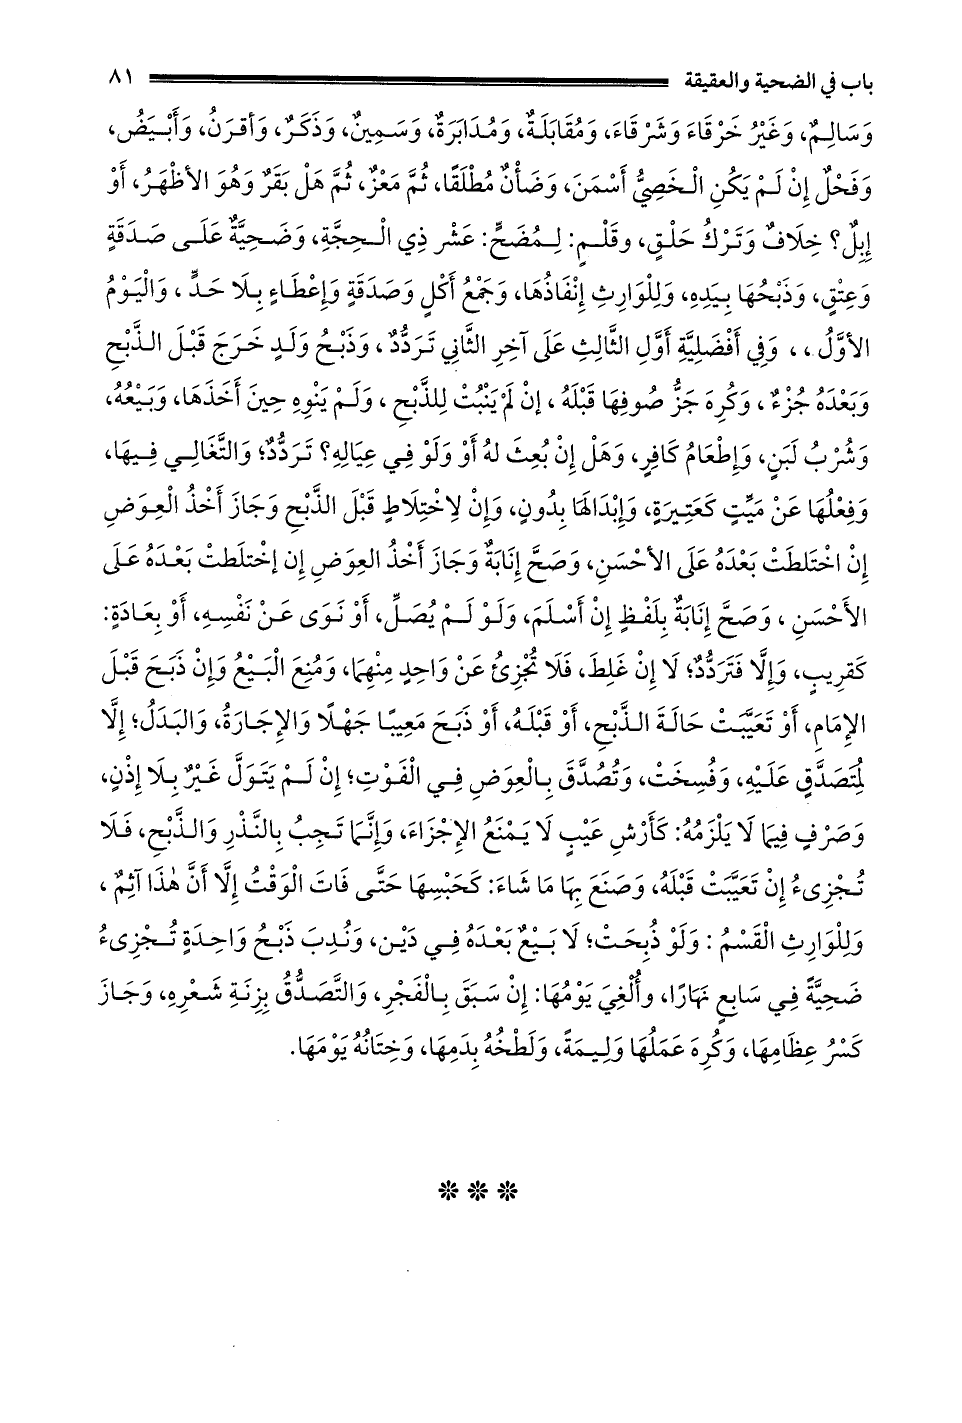 باب في الضحية والعقيقة ٨١
وَسَالِمٌ، وَغَيْرُ خَرْقَاءَ وَشَرْقَاءَ، وَمُقَابَلَةٌ، وَمُدَابَرَةٌ، وَسَمِينٌ، وَذَكَرٌ، وَأقرَنُ، وَأَبْيَضُ،
وَفَحْلٌ إِنْ لَمْ يَكُنِ الْخَصِيُّ أَسْمَنَ، وَضَأْنٌ مُطْلَقًا، ثُمَّ مَعْزٌ، ثُمَّ هَلْ بَقَرٌ وَهُوَ الأظْهَرُ، أَوْ
إِبِلٌ؟ خِلَافٌ وَتَرْكُ حَلْقٍ، وقَلْمٍ: لِمُضَحٍّ: عَشْر ذِي الْحِجَّةِ، وَضَحِيَّةٌ عَلَى صَدَقَةٍ
وَعِتْقٍ، وَذَبْحُهَا بِيَدِهِ، وَلِلْوَارِثِ إِنْفَاذُهَا، وَجَمْعُ أَكْلٍ وَصَدَقَةٍ وَإِعْطَاءٍ بِلَا حَدٍّ ، وَالْيَوْمُ
الأوَّلُ ، ، وَفِي أَفْضَلِيَّةِ أَوَّلِ الثَّالِثِ عَلَى آخِرِ الثَّانِي تَرَدُّدٌ ، وَذَبْحُ وَلَدٍ خَرَجَ قَبْلَ الذَّبْحِ
وَبَعْدَهُ جُزْءٌ ، وَكُرِهَ جَزُّ صُوفِهَا قَبْلَهُ ، إِنْ لَمْ يَنْبُتْ لِلذَّبْحِ ، وَلَمْ يَنْوِهِ حِينَ أَخَذَهَا، وَبَيْعُهُ،
وَشُرْبُ لَبَنٍ، وَإِطْعَامُ كَافِرٍ، وَهَلْ إِنْ بُعِثَ لهُ أَوْ وَلَوْ فِي عِيَالِهِ؟ تَرَدُّدٌ؛ وَالتَّغَالِي فِيهَا،
وَفِعْلُهَا عَنْ مَيِّتٍ كَعَتِيرَةٍ، وَإِبْدَالهَا بِدُونٍ، وَإِنْ لِاخْتِلَاطٍ قَبْلَ الذَّبْحِ وَجَازَ أَخْذُ الْعِوَضِ
إِنْ اخْتَلَطَتْ بَعْدَهُ عَلَى الأحْسَنِ، وَصَحَّ إِنَابَةٌ وَجَازَ أَخْذُ العِوَضِ إِن إختلَطتْ بَعْدَهُ عَلَى
الأحْسَنِ ، وَصَحَّ إِنَابَةٌ بِلَفْظٍ إِنْ أَسْلَمَ، وَلَوْ لَمْ يُصَلِّ، أَوْ نَوَى عَنْ نَفْسِهِ، أَوْ بِعَادَةٍ:
كَقَرِيبٍ، وَإِلَّا فَتَرَدُّدٌ؛ لَا إِنْ غَلِطَ، فَلَا تُجْزِئُ عَنْ وَاحِدٍ مِنْهُمَا، وَمُنِعَ الْبَيْعُ وَإِنْ ذَبَحَ قَبْلَ
الإِمَامِ، أَوْ تَعَيَّبَتْ حَالَةَ الذَّبْحِ، أَوْ قَبْلَهُ، أَوْ ذَبَحَ مَعِيبًا جَهْلًا وَالإِجَارَةُ، وَالبَدَلُ؛ إِلَّا
لِمُتَصَدَّقٍ عَلَيْهِ، وَفُسِخَتْ، وَتُصُدِّقَ بِالْعِوَضِ فِي الْفَوْتِ؛ إِنْ لَمْ يَتَوَلَّ غَيْرٌ بِلَا إِذْنٍ،
وَصَرْفٍ فِيمَا لَا يَلْزَمُهُ: كَأَرْشِ عَيْبٍ لَا يَمْنَعُ الإِجْزَاءَ، وَإِنَّمَا تَجِبُ بِالنَّذْرِ وَالذَّبْحِ، فَلَا
تُجْزِىءُ إِنْ تَعَيَّبَتْ قَبْلَهُ، وَصَنَعَ بِهَا مَا شَاءَ: كَحَبْسِهَا حَتَّى فَاتَ الْوَقْتُ إِلَّا أَنَّ هٰذَا آثِمٌ ،
وَلِلْوَارِثِ الْقَسْمُ : وَلَوْ ذُبِحَتْ؛ لَا بَيْعٌ بَعْدَهُ فِي دَيْنٍ، وَنُدِبَ ذَبْحُ وَاحِدَةٍ تُجْزِىءُ
ضَحِيَّةً فِي سَابِعِ نَهَارًا، وأُلْغِيَ يَوْمُهَا: إِنْ سَبَقَ بِالْفَجْرِ، وَالتَّصَدُّقُ بِزِنَةِ شَعْرِهِ، وَجَازَ
كَسْرُ عِظَامِهَا، وَكُرِهَ عَمَلُهَا وَلِيمَةً، وَلَطْخُهُ بِدَمِهَا، وَخِتَانُهُ يَوْمَهَا.